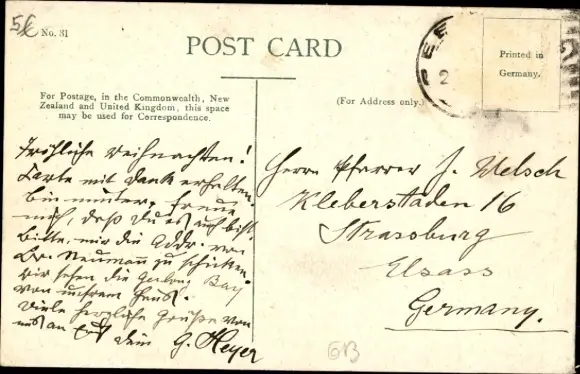 5
No. 31
POST CARD
Printed in
Germany.
For Postage, in the Commonwealth, New
Zealand and United Kingdom, this space
may be used for Correspondence.
(For Address only.)
Fröhliche Weihnachten!
Karte mit Dank erhalten.
Bin munter, freue
mich, daß du es auch bist.
Bitte, mir die Addr. von
Dr. Neumann zu schicken.
Wir sehen die Geelong Bay
von unserem Haus.
Viele herzliche Grüße von
uns an Euch dein G. Heyer
Herrn Pfarrer J. Welsch
Kleberstaden 16
Strassburg
Elsass
Germany.
GB